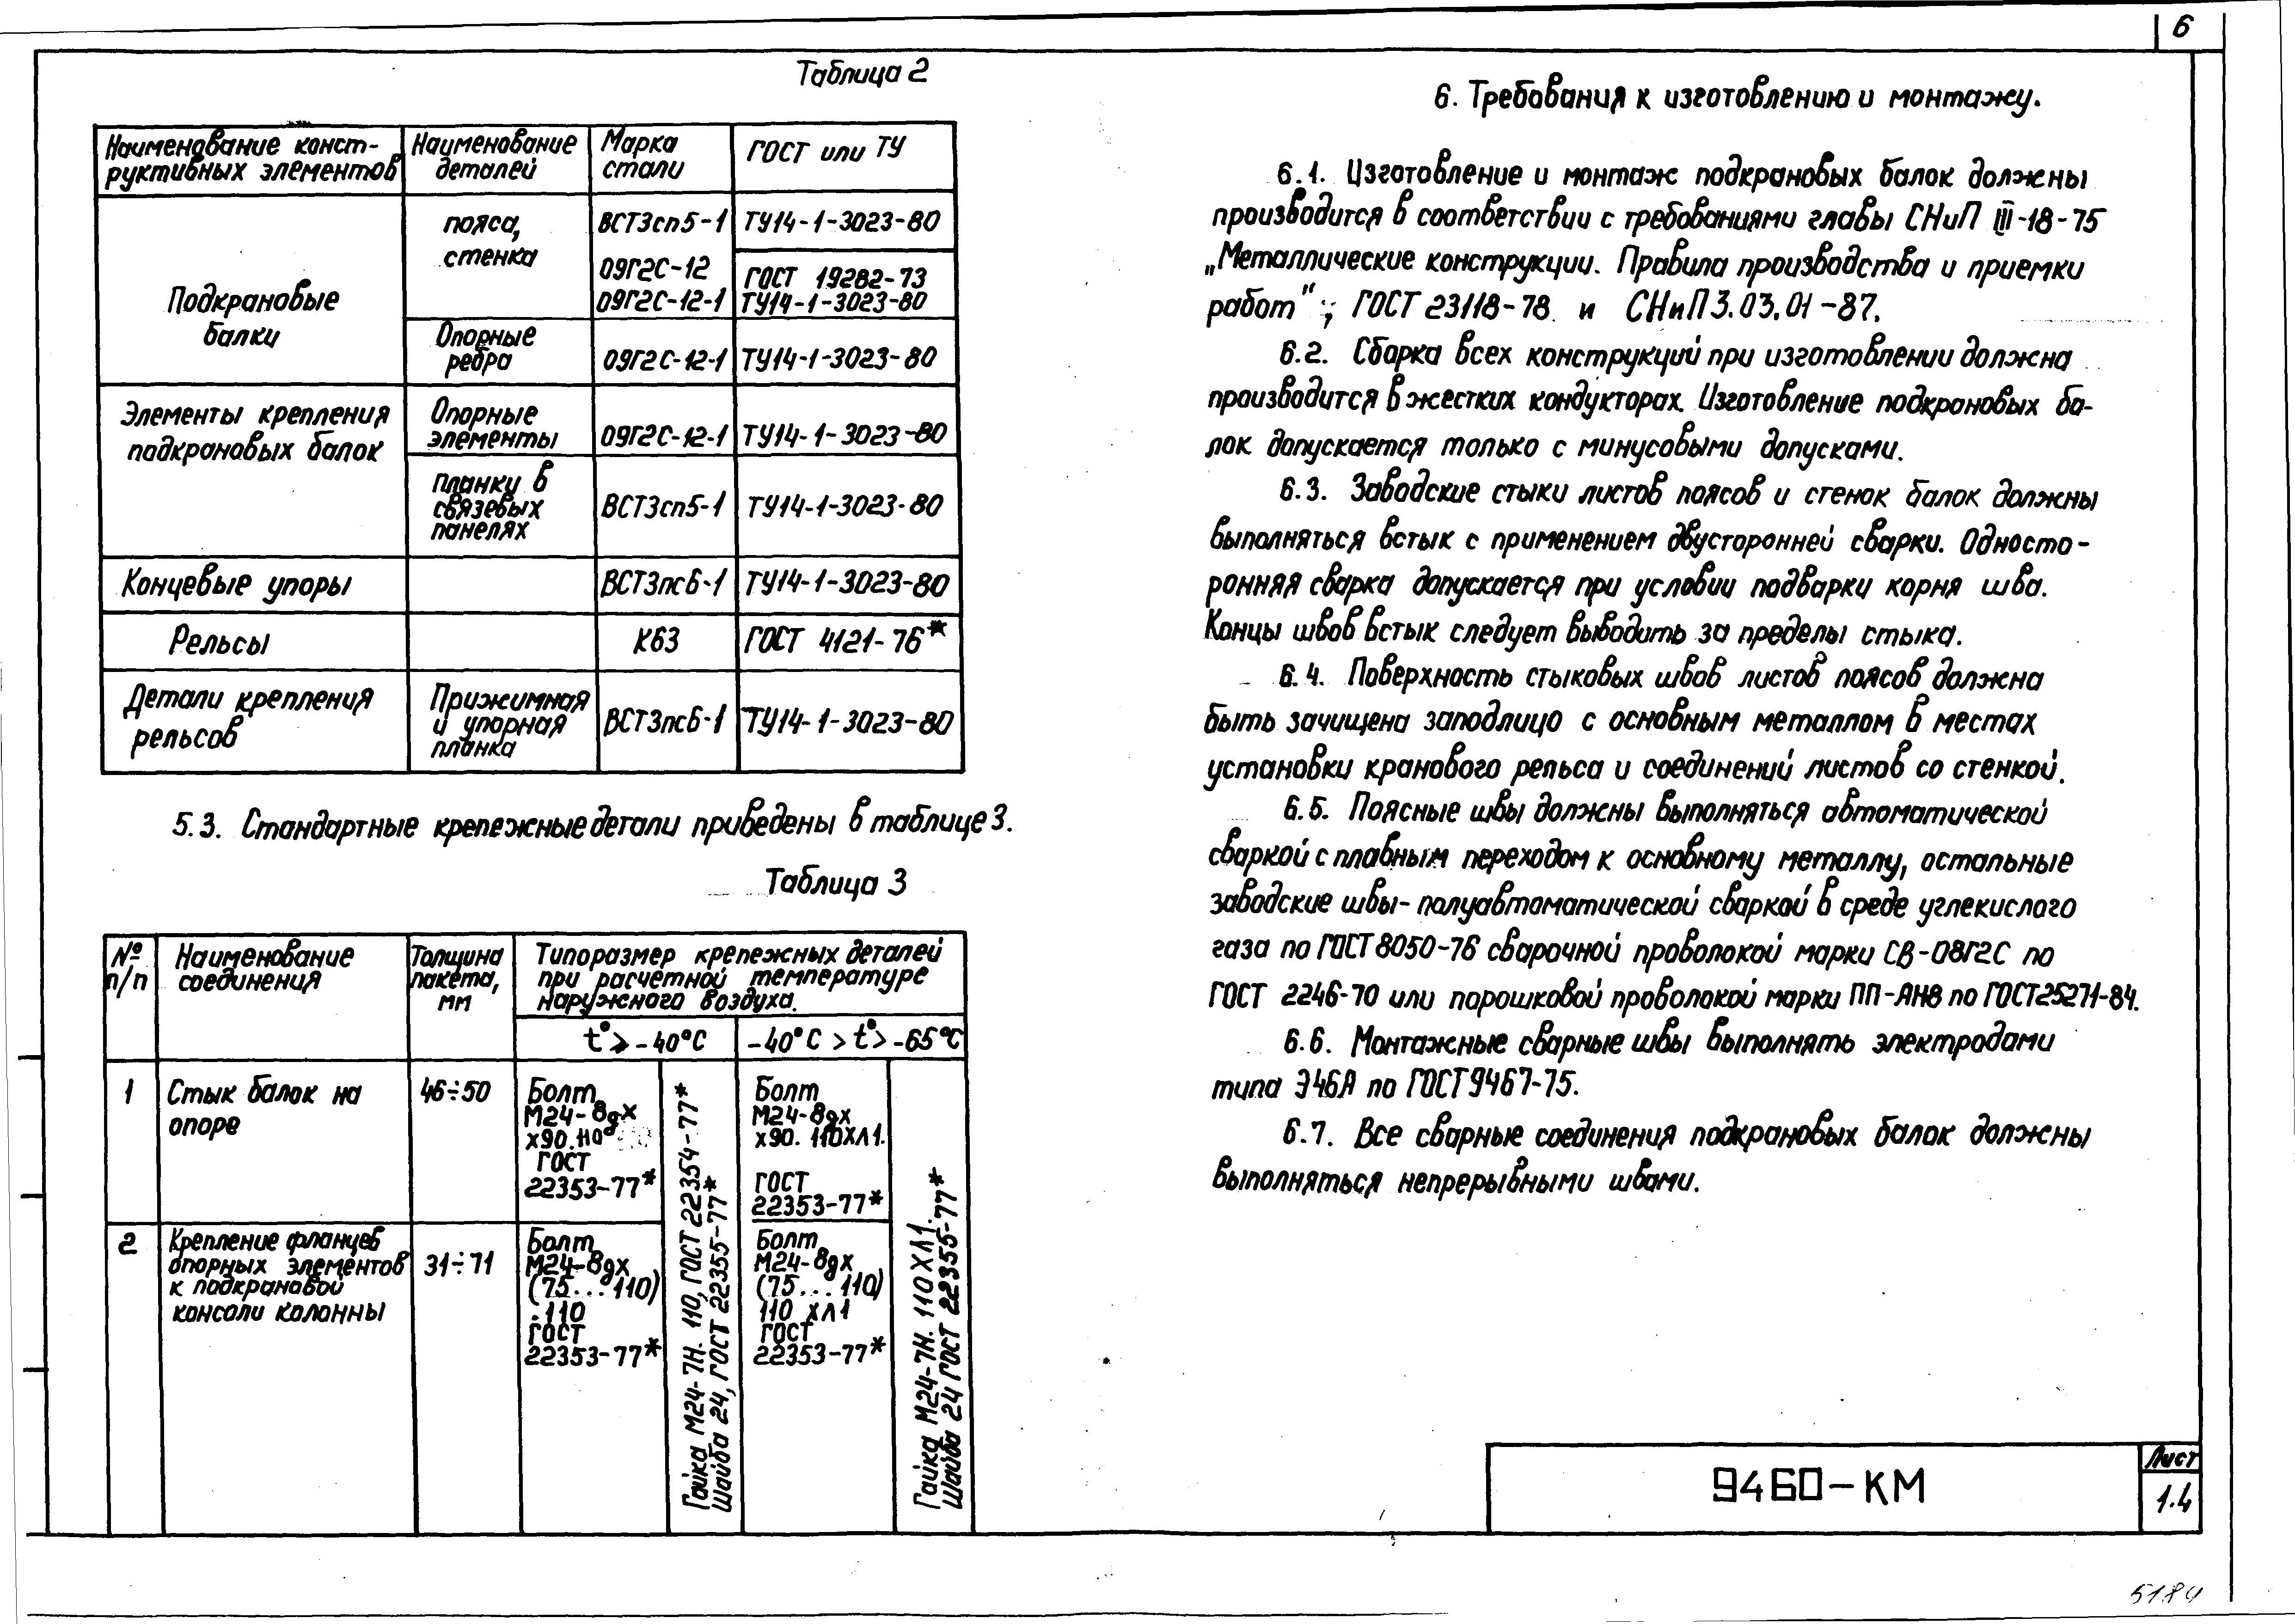 6
Таблица 2
Наименование конст-
руктивных элементов
Наименование
деталей
Марка
стали
ГОСТ или ТУ
Подкрановые
балки
пояса,
стенка
ВСТ3сп5-1
ТУ14-1-3023-80
09Г2С-12
ГОСТ 19282-73
09Г2С-12-1
ТУ14-1-3023-80
Опорные
ребра
09Г2С-12-1
ТУ14-1-3023-80
Элементы крепления
подкрановых балок
Опорные
элементы
09Г2С-12-1
ТУ14-1-3023-80
планки в
связевых
панелях
ВСТ3сп5-1
ТУ14-1-3023-80
Концевые упоры
ВСТ3пс6-1
ТУ14-1-3023-80
Рельсы
К63
ГОСТ 4121-76*
Детали крепления
рельсов
Прижимная
и упорная
планка
ВСТ3пс6-1
ТУ14-1-3023-80
5.3. Стандартные крепежные детали приведены в таблице 3.
Таблица 3
№
п/п
Наименование
соединения
Толщина
пакета,
мм
Типоразмер крепежных деталей
при расчетной температуре
наружного воздуха.
t° ⩾ -40°С
-40°С > t° > -65°С
1
Стык балок на
опоре
46÷50
Болт
М24-8gх
х90.110
ГОСТ
22353-77*
Гайка М24-7Н. 110, ГОСТ 22354-77*
Шайба 24, ГОСТ 22355-77*
Болт
М24-8gх
х90. 110ХЛ1.
ГОСТ
22353-77*
Гайка М24-7Н. 110ХЛ1.
Шайба 24 ГОСТ 22355-77*
2
Крепление фланцев
опорных элементов
к подкрановой
консоли колонны
31÷71
Болт
М24-8gх
(75...110)
.110
ГОСТ
22353-77*
Болт
М24-8gх
(75...110)
110 ХЛ1
ГОСТ
22353-77*
6. Требования к изготовлению и монтажу.
6.1. Изготовление и монтаж подкрановых балок должны
производится в соответствии с требованиями главы СНиП III-18-75
„Металлические конструкции. Правила производства и приемки
работ"; ГОСТ 23118-78 и СНиП 3.03.01-87.
6.2. Сборка всех конструкций при изготовлении должна
производится в жестких кондукторах. Изготовление подкрановых ба-
лок допускается только с минусовыми допусками.
6.3. Заводские стыки листов поясов и стенок балок должны
выполняться встык с применением двусторонней сварки. Односто-
ронняя сварка допускается при условии подварки корня шва.
Концы швов встык следует выводить за пределы стыка.
6.4. Поверхность стыковых швов листов поясов должна
быть зачищена заподлицо с основным металлом в местах
установки кранового рельса и соединений листов со стенкой.
6.5. Поясные швы должны выполняться автоматической
сваркой с плавным переходом к основному металлу, остальные
заводские швы- полуавтоматической сваркой в среде углекислого
газа по ГОСТ 8050-76 сварочной проволокой марки СВ-08Г2С по
ГОСТ 2246-70 или порошковой проволокой марки ПП-АН8 по ГОСТ 25271-84.
6.6. Монтажные сварные швы выполнять электродами
типа Э46А по ГОСТ 9467-75.
6.7. Все сварные соединения подкрановых балок должны
выполняться непрерывными швами.
9460-КМ
Лист
1.4
5184